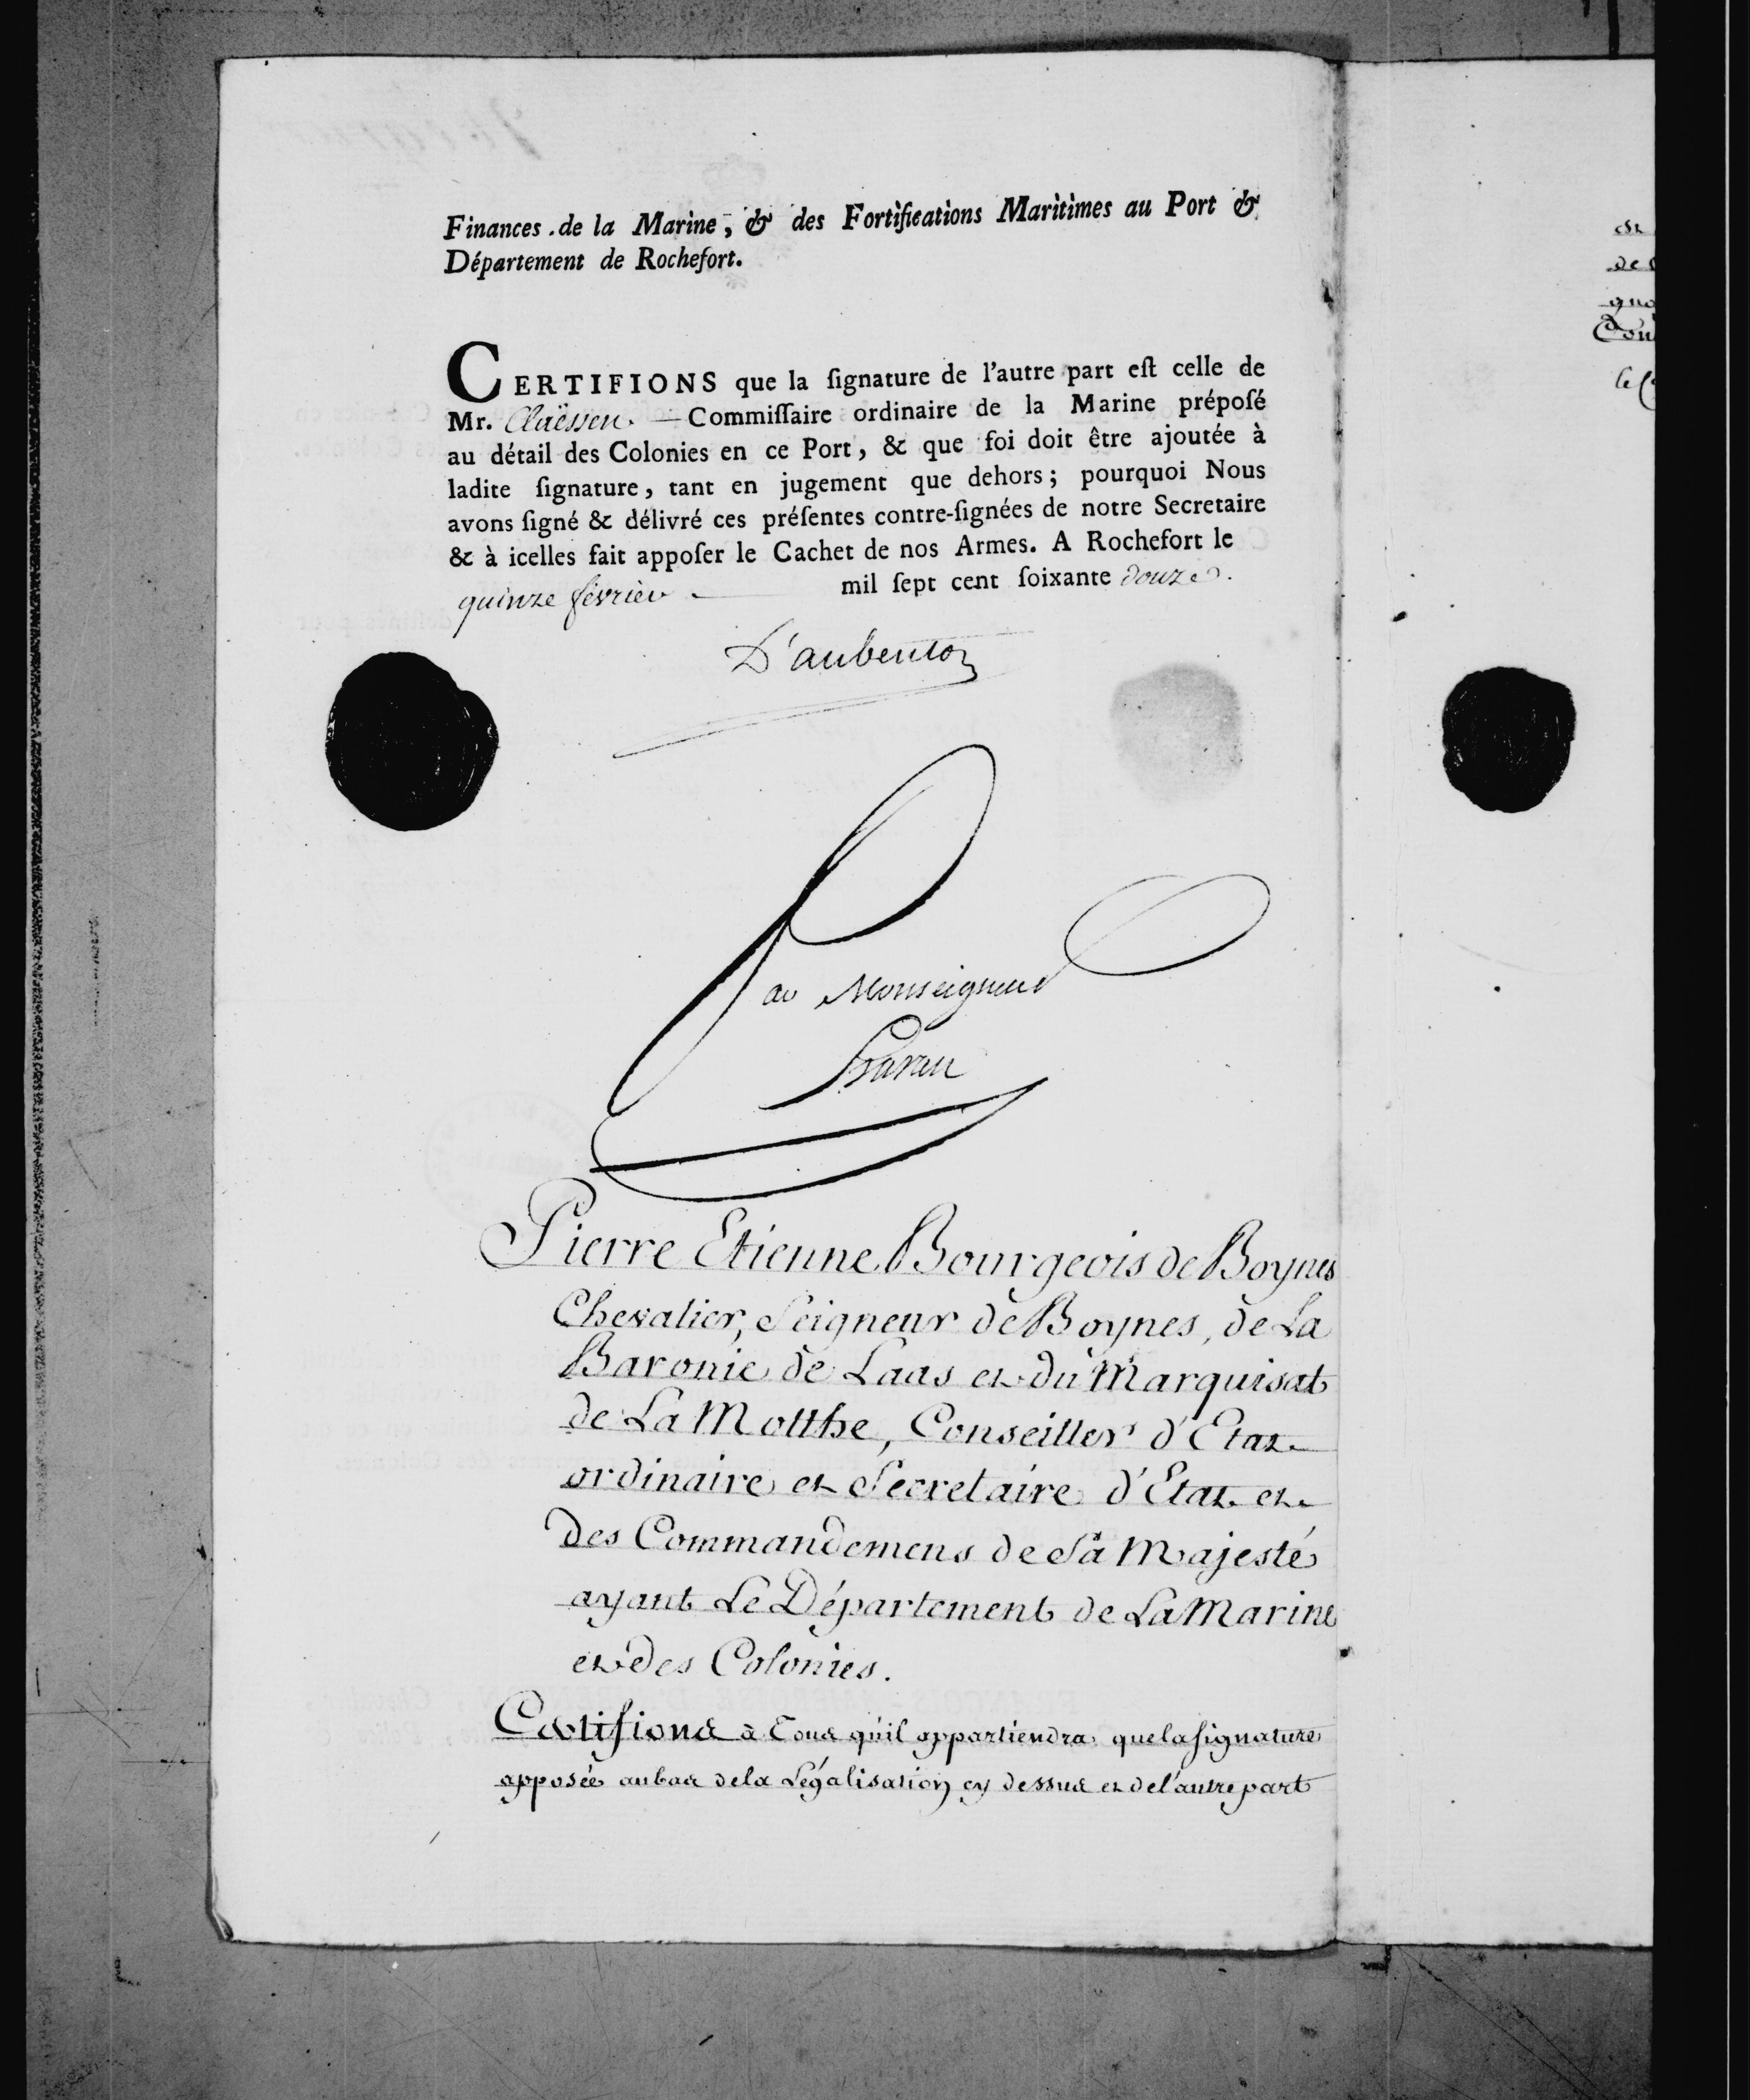 Finances de la Marine, & des Fortifications Maritimes au Port &
Département de Rochefort.
CERTIFIONS que la ſignature de l'autre part eſt celle de
Mr. Claëssen. — Commiſſaire ordinaire de la Marine prépoſé
au détail des Colonies en ce Port, & que foi doit être ajoutée à
ladite ſignature, tant en jugement que dehors; pourquoi Nous
avons ſigné & délivré ces préſentes contre-ſignées de notre Secretaire
& à icelles fait appoſer le Cachet de nos Armes. A Rochefort le
quinze février — mil ſept cent ſoixante douze.
D'aubenton
Par Monseigneur
Pierre Etienne Bourgeois de Boynes
Chevalier, Seigneur de Boynes, de La
Baronie de Laas et du Marquisat
de La Motthe, Conseiller d'Etat
ordinaire et Secretaire d'Etat et
des Commandemens de Sa Majesté
ayant Le Département de La Marine
et des Colonies.
Certifions à Tous qu'il appartiendra que la signature
apposée au bas de la Légalisation cy dessus et de l'autre part
est